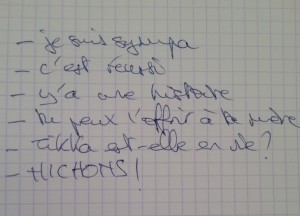 - je suis sympa
- c'est réussi
- y'a une histoire
- tu peux l'offrir à ta mère
- Tikka est-elle en vie ?
- NICHONS !